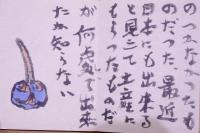 のつかなかつたも
のだつた、最近
日本にも出来る
と見えて土産に
もらつたものだ
が何處で出来
たか知らない